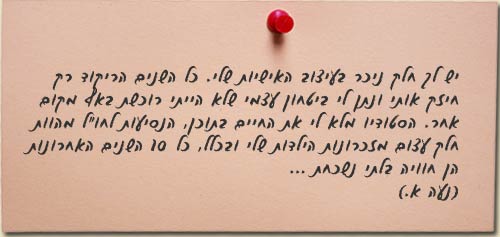 יש לך חלק ניכר בעיצוב האישיות שלי. כל השנים הריקוד רק
חיזק אותי ונתן לי ביטחון עצמי שלא הייתי רוכשת באף מקום
אחר. הסטודיו מלא לי את החיים בתוכן, הנסיעות לחו"ל מהוות
חלק עצום מזכרונות הילדות שלי ובכלל, כל 10 השנים האחרונות
הן חוויה בלתי נשכחת ...
(נעה א.)